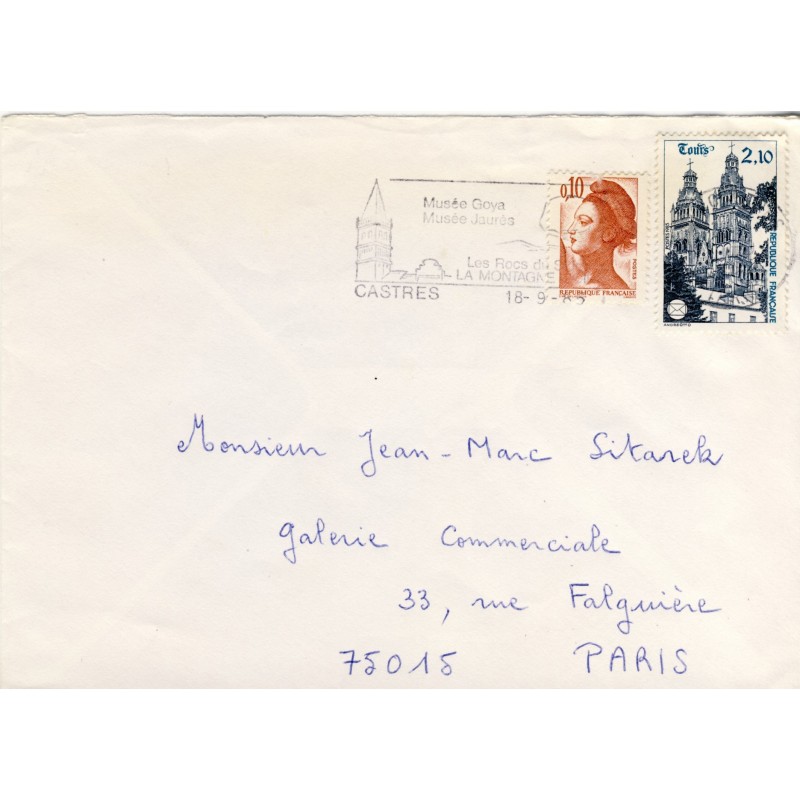 Musée Goya
Musée Jaurès
Les Rocs du
LA MONTAGNE
CASTRES
18-9-85
0,10
POSTES
REPUBLIQUE FRANÇAISE
Tours
2,10
POSTES 1985
REPUBLIQUE FRANÇAISE
Monsieur Jean-Marc Sitarek
Galerie Commerciale
33, rue Falguière
75015 PARIS